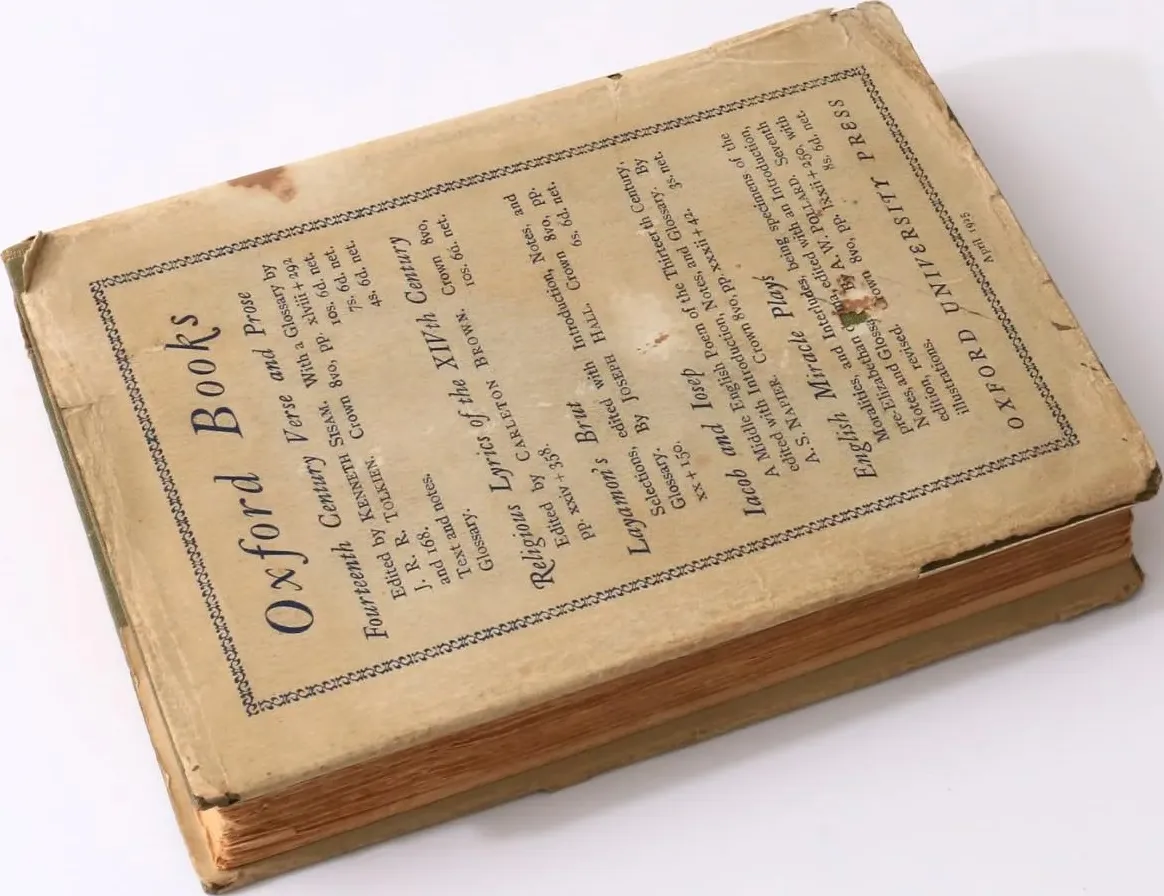 Oxford Books
Fourteenth Century Verse and Prose
Edited by KENNETH SISAM. With a Glossary by
J. R. R. TOLKIEN. Crown 8vo, pp. xlviii + 292
and 168. 10s. 6d. net.
Text and notes. 7s. 6d. net.
Glossary. 4s. 6d. net.
Religious Lyrics of the XIVth Century
Edited by CARLETON BROWN. Crown 8vo,
pp. xxiv + 358. 10s. 6d. net.
Layamon's Brut
Selections, edited with Introduction, Notes, and
Glossary. By JOSEPH HALL. Crown 8vo, pp.
xx + 150. 6s. 6d. net.
Iacob and Iosep
A Middle English Poem of the Thirteenth Century,
edited with Introduction, Notes, and Glossary. By
A. S. NAPIER. Crown 8vo, pp. xxxii + 42. 3s. net.
English Miracle Plays
Moralities, and Interludes, being specimens of the
pre-Elizabethan ma, edited with an Introduction,
Notes, and Gloss By A. W. POLLARD. Seventh
edition, revised. Crown 8vo, pp. + 250, with
illustrations. 8s. 6d. net.
OXFORD UNIVERSITY PRESS
April 1925